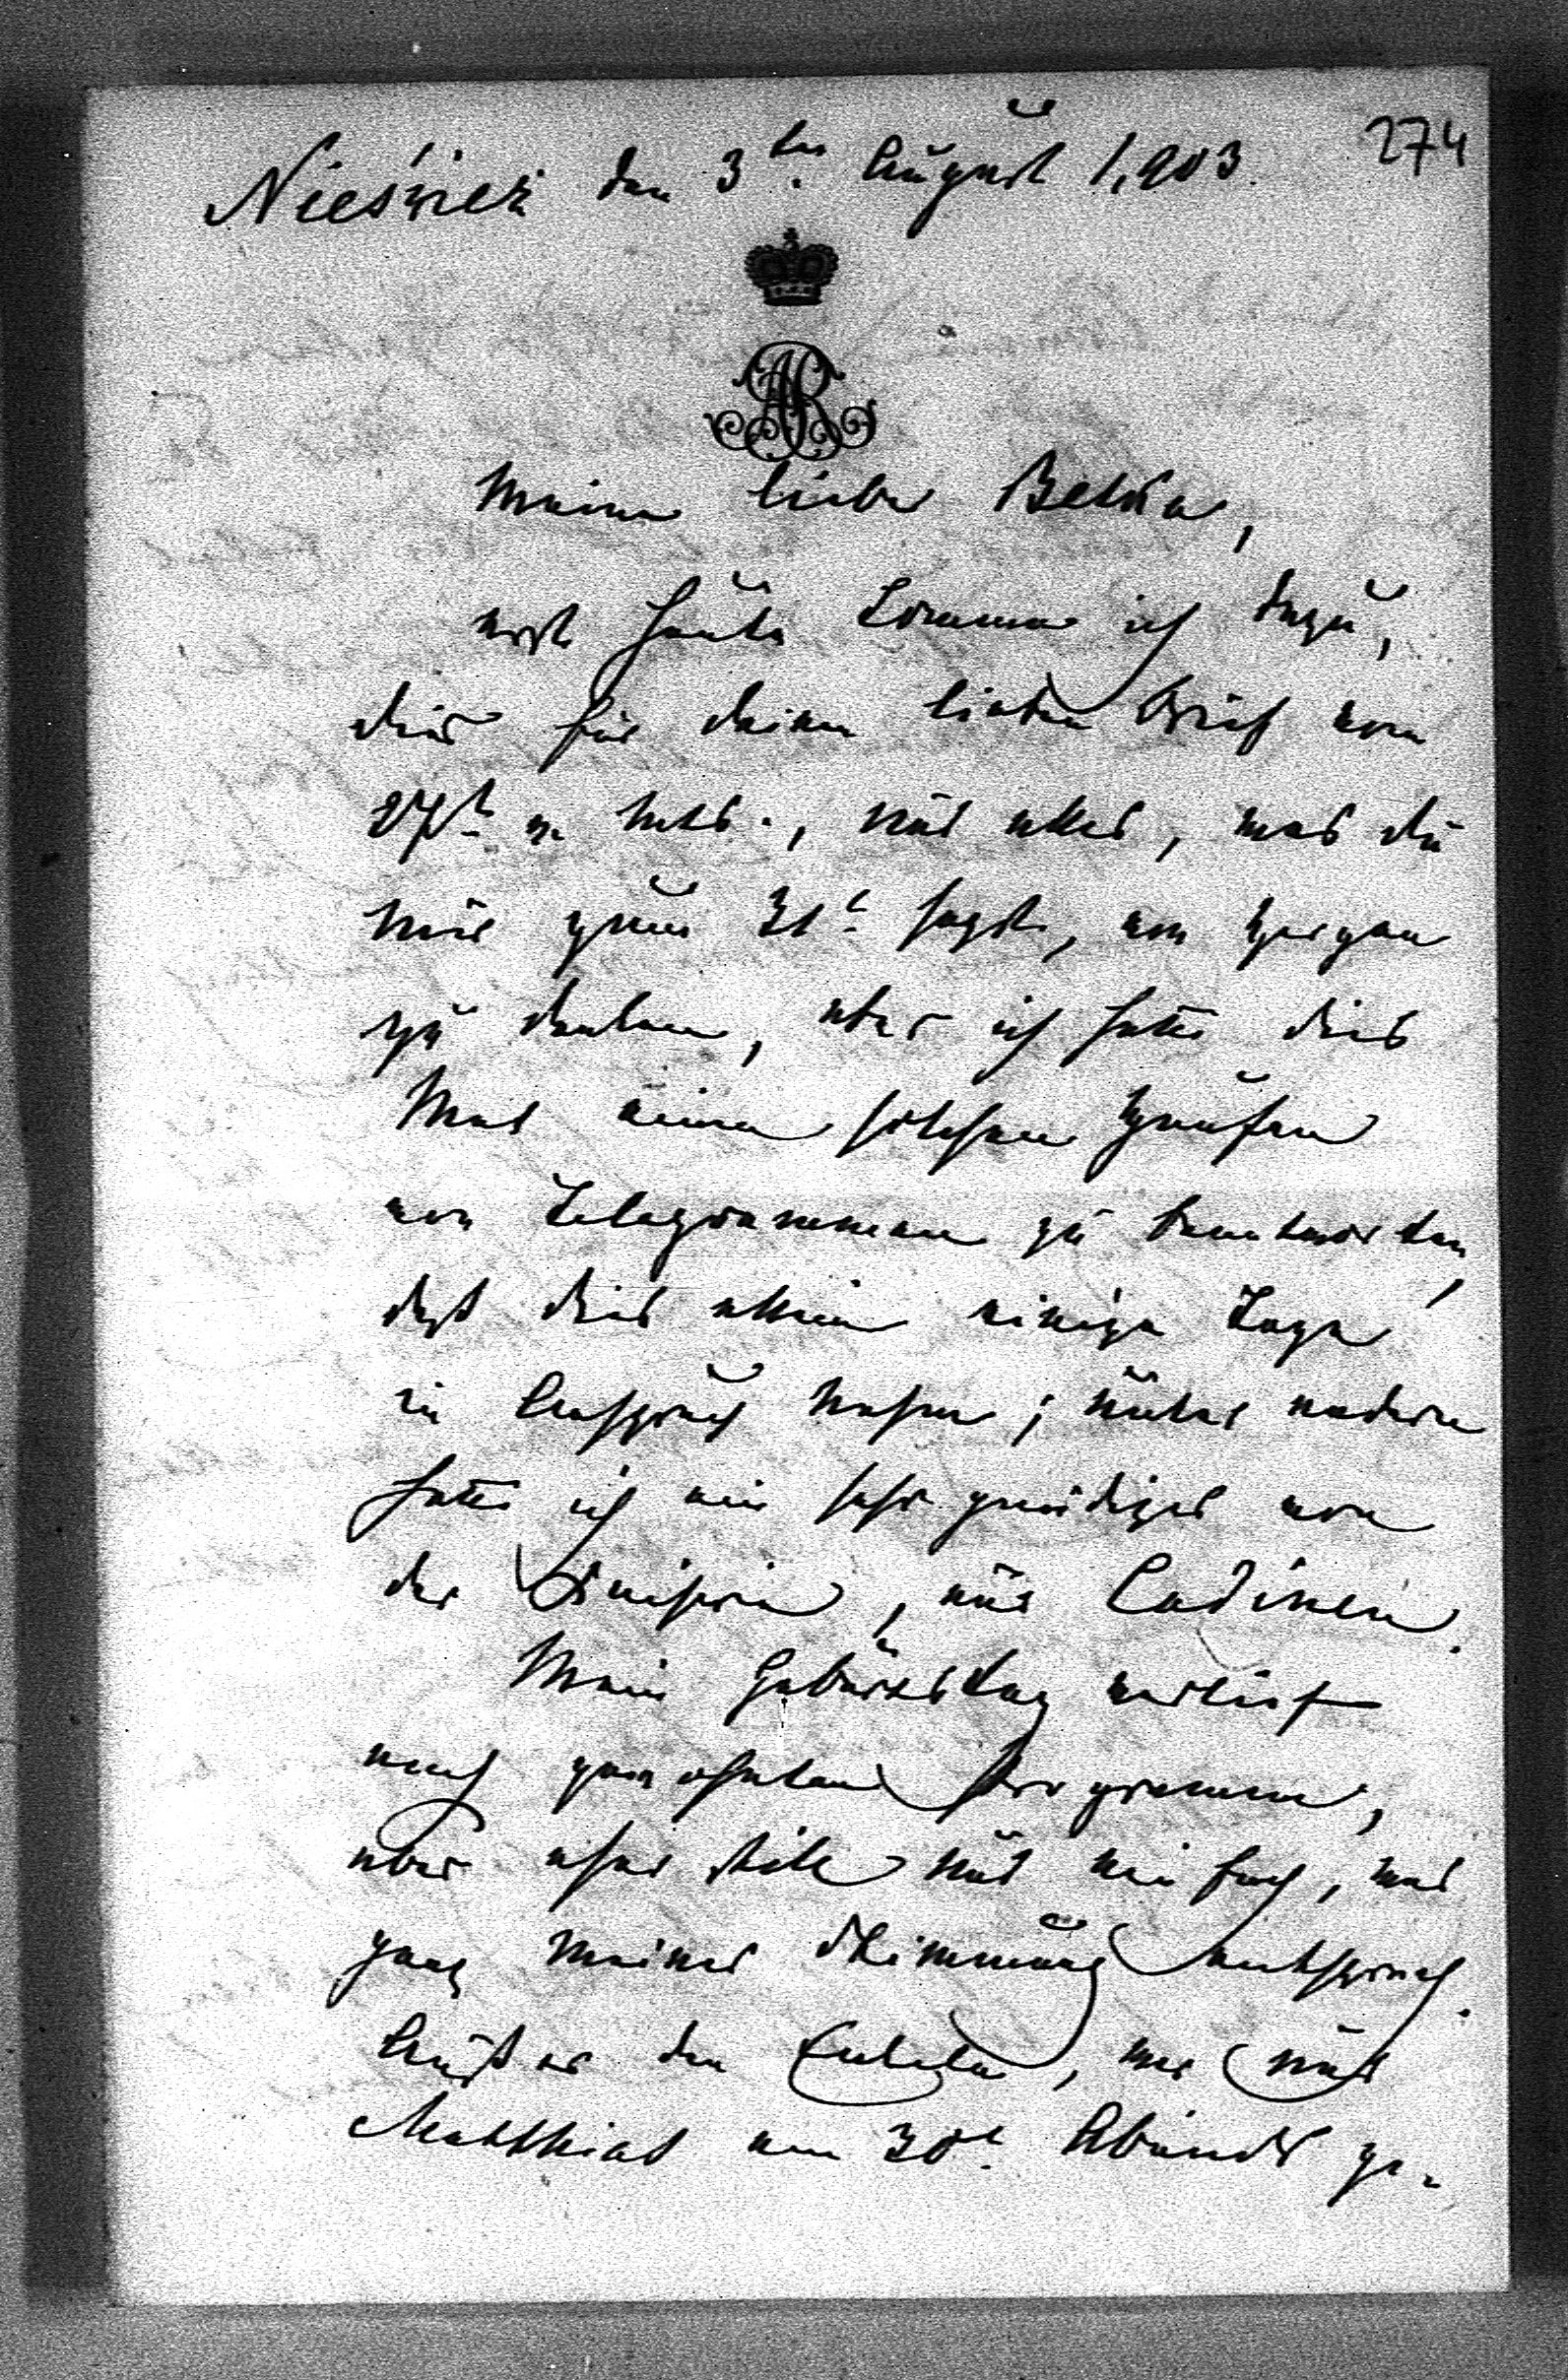 274
Nieśwież den 3ten August 1,903.
AR
Meine liebe Betka,
erst heute komme ich dazu,
dir für deinen lieben Brief vom
27t v. Mts., und alles, was du
mir zum 31t sagst, von Herzen
zu danken, aber ich hatte dies
Mal einen solchen Haufen
von Telegrammen zu beantworten,
daß dies allein einige Tage
in Anspruch nahm; unter anderen
hatte ich ein sehr gnädiges von
der Kaiserin, aus Cadinen.
Mein Geburtstag verlief
nach gewohntem Programm,
aber eher still und einfach, was
ganz meiner Stimmung entsprach.
Außer den Eulela, wo und
Matthias am 30t Abends ge-